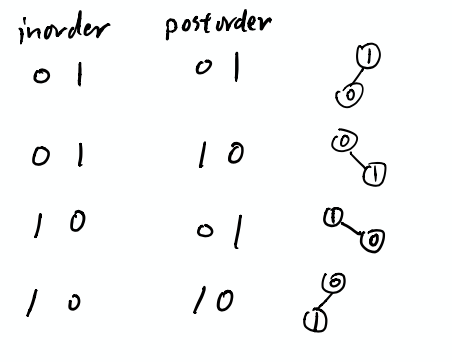 inorder postorder
0 1 0 1 1 0
0 1 1 0 0 1
1 0 0 1 1 0
1 0 1 0 0 1